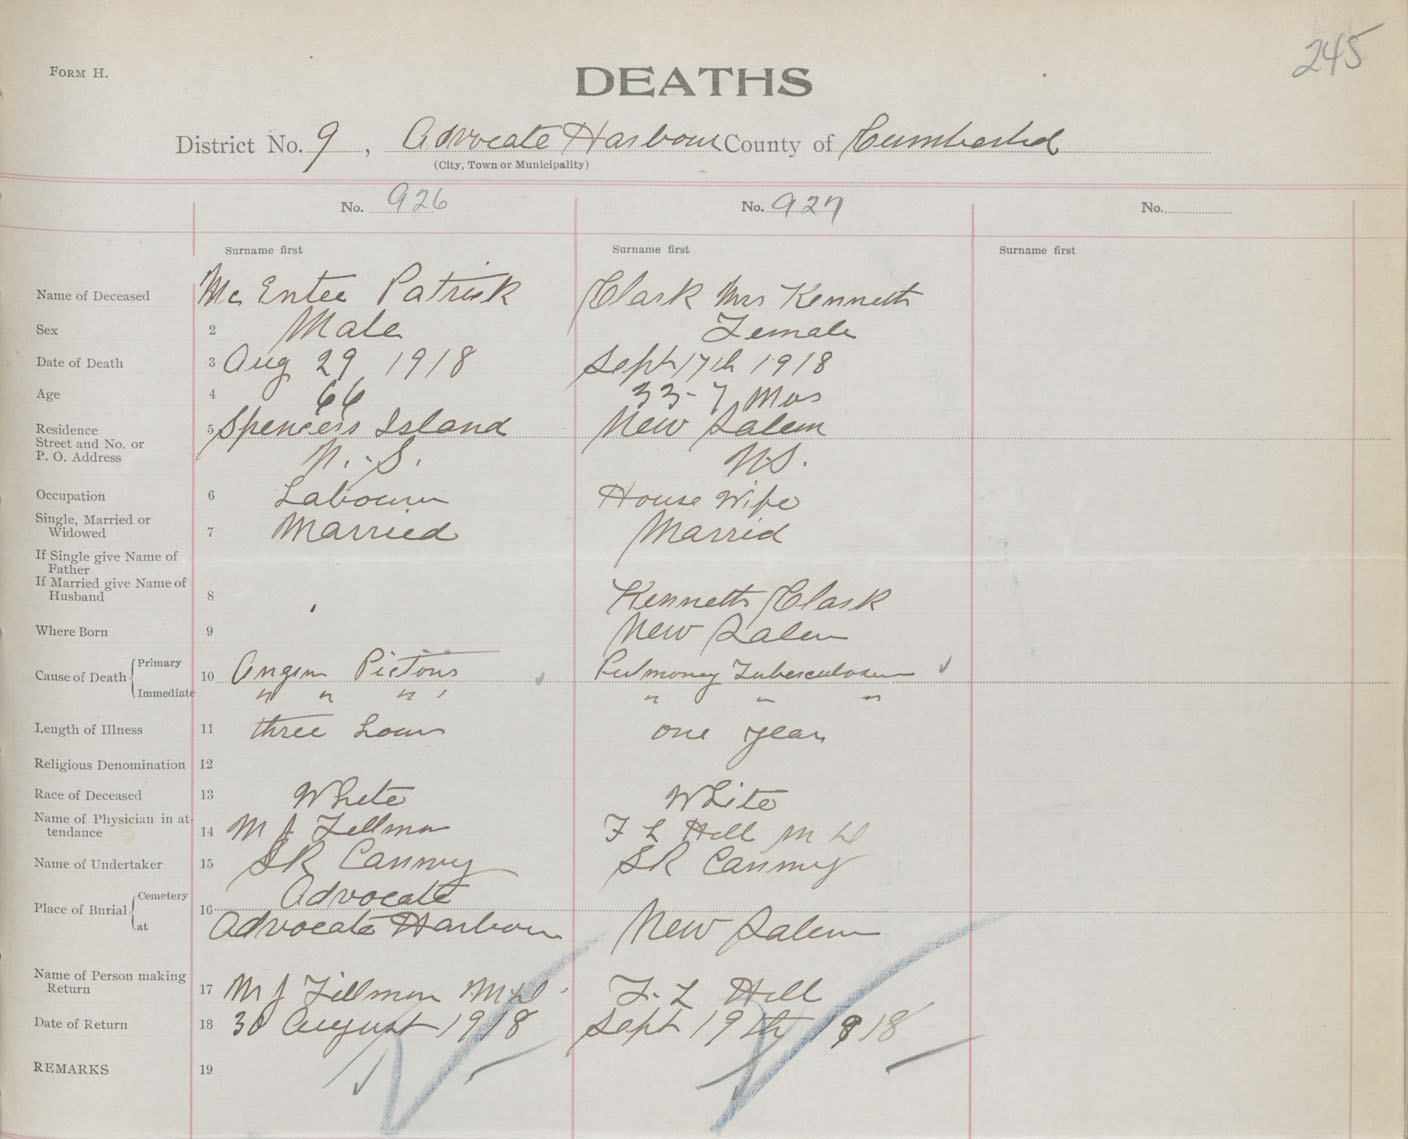 245
FORM H.
DEATHS
District No. 9, Advocate Harbour County of Cumberland
(City, Town or Municipality)
No. 926 No. 927 No.
Surname first Surname first Surname first
Name of Deceased Mc Entee Patrick Clark Mrs Kenneth
Sex 2 Male Female
Date of Death 3 Aug 29 1918 Sept 17th 1918
Age 4 66 33-7 Mos
Residence 5 Spencers Island New Salem
Street and No. or
P. O. Address N.S. N.S.
Occupation 6 Labourer House Wife
Single, Married or
Widowed 7 Married Marrid
If Single give Name of
Father
If Married give Name of
Husband 8 Kenneth Clark
Where Born 9 New Salem
Cause of Death Primary 10 Pictoris Pulmoney Tuberculosis
Immediate " " " " " "
Length of Illness 11 three hours one year
Religious Denomination 12
Race of Deceased 13 White White
Name of Physician in at-
tendance 14 M J Fillmore F L Hill M D
Name of Undertaker 15 S R
Place of Burial Cemetery 16 Advocate
at Advocate Harbour New Salem
Name of Person making
Return 17 M J Fillmore M.D. F. L Hill
Date of Return 18 30 August 1918 Sept 19th 1918
REMARKS 19